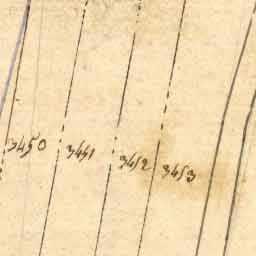 3450
3451
3452
3453